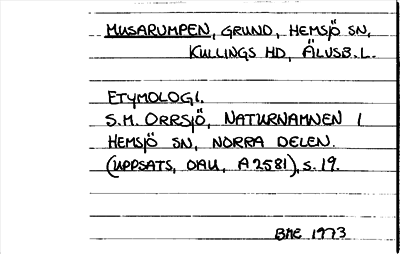 MUSARUMPEN, GRUND, HEMSJÖ SN,
KULLINGS HD, ÄLVSB.L.
ETYMOLOGI.
S.M. ORRSJÖ, NATURNAMNEN I
HEMSJÖ SN, NORRA DELEN.
(UPPSATS, OAU, A2581), S. 19.
BME 1973